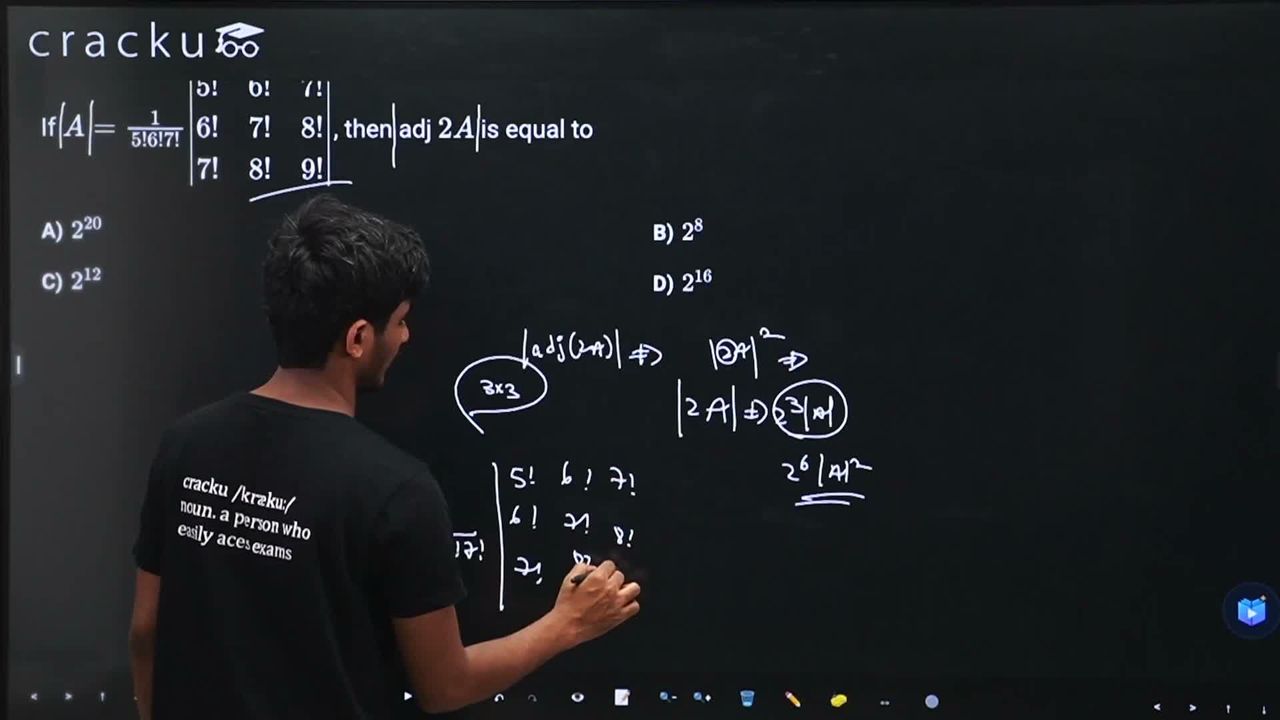 cracku
5! 6! 7!
If |A| = 1/5!6!7! 6! 7! 8! , then |adj 2A| is equal to
7! 8! 9!
A) 2^20
B) 2^8
C) 2^12
D) 2^16
|adj(2A)| ⇒ |2A|^2 ⇒
3x3
|2A| ⇒ 2^3|A|
2^6|A|^2
5! 6! 7!
6! 7! 8!
7!
7! 8
cracku /kræku:/
noun. a person who
easily aces exams